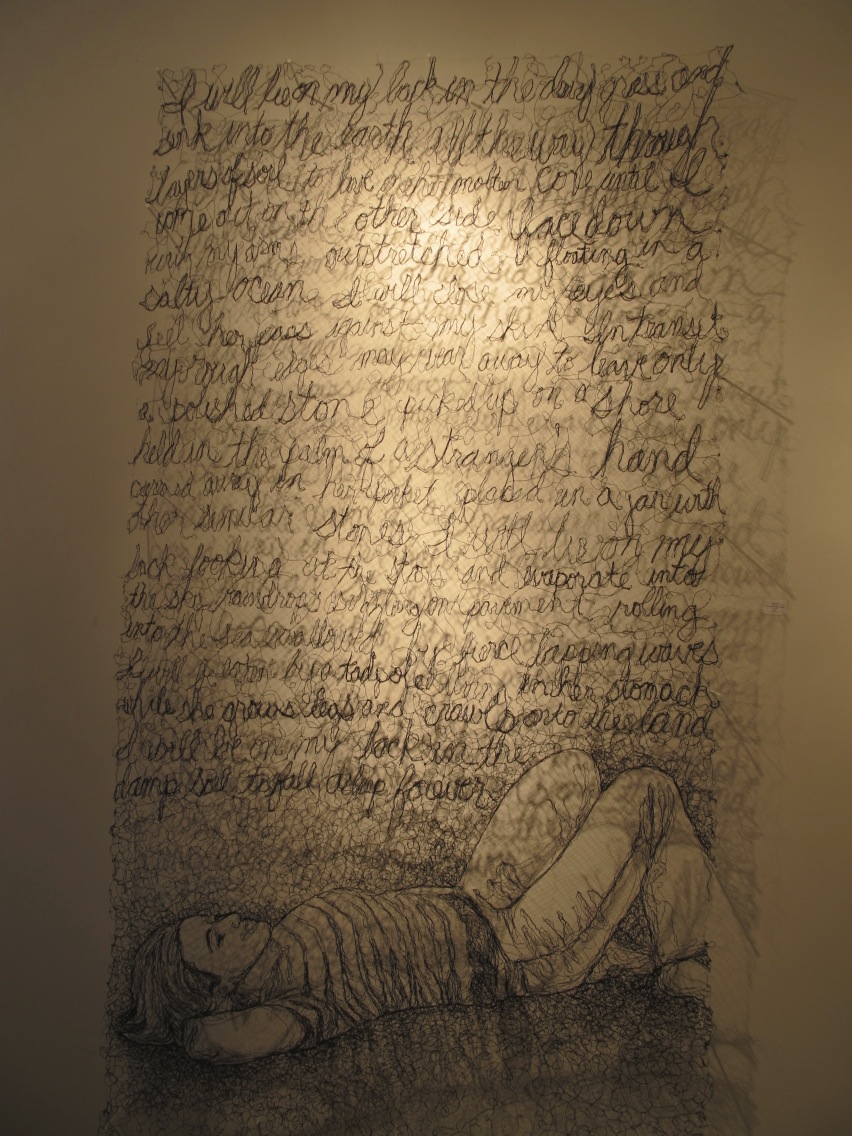 I will lie on my back in the dewy grass and
sink into the earth all the way through
layers of soil to live molten core until I
come out on the other side face down
with my arms outstretched floating in a
salty ocean. I will close my eyes and
feel her against my skin. In transit
my rough edges may wear away to leave only
a polished stone picked up on a shore
held in the palm of a stranger's hand
carried away in her pocket placed in a jar with
other similar stones. I will lie on my
back looking at the stars and evaporate into
the sky raindrops on pavement rolling
into the sea swallowed by fierce lapping waves
I will a tadpole living in her stomach
while she grows legs and crawls onto the land
I will lie on my back in the
damp soil to fall asleep forever